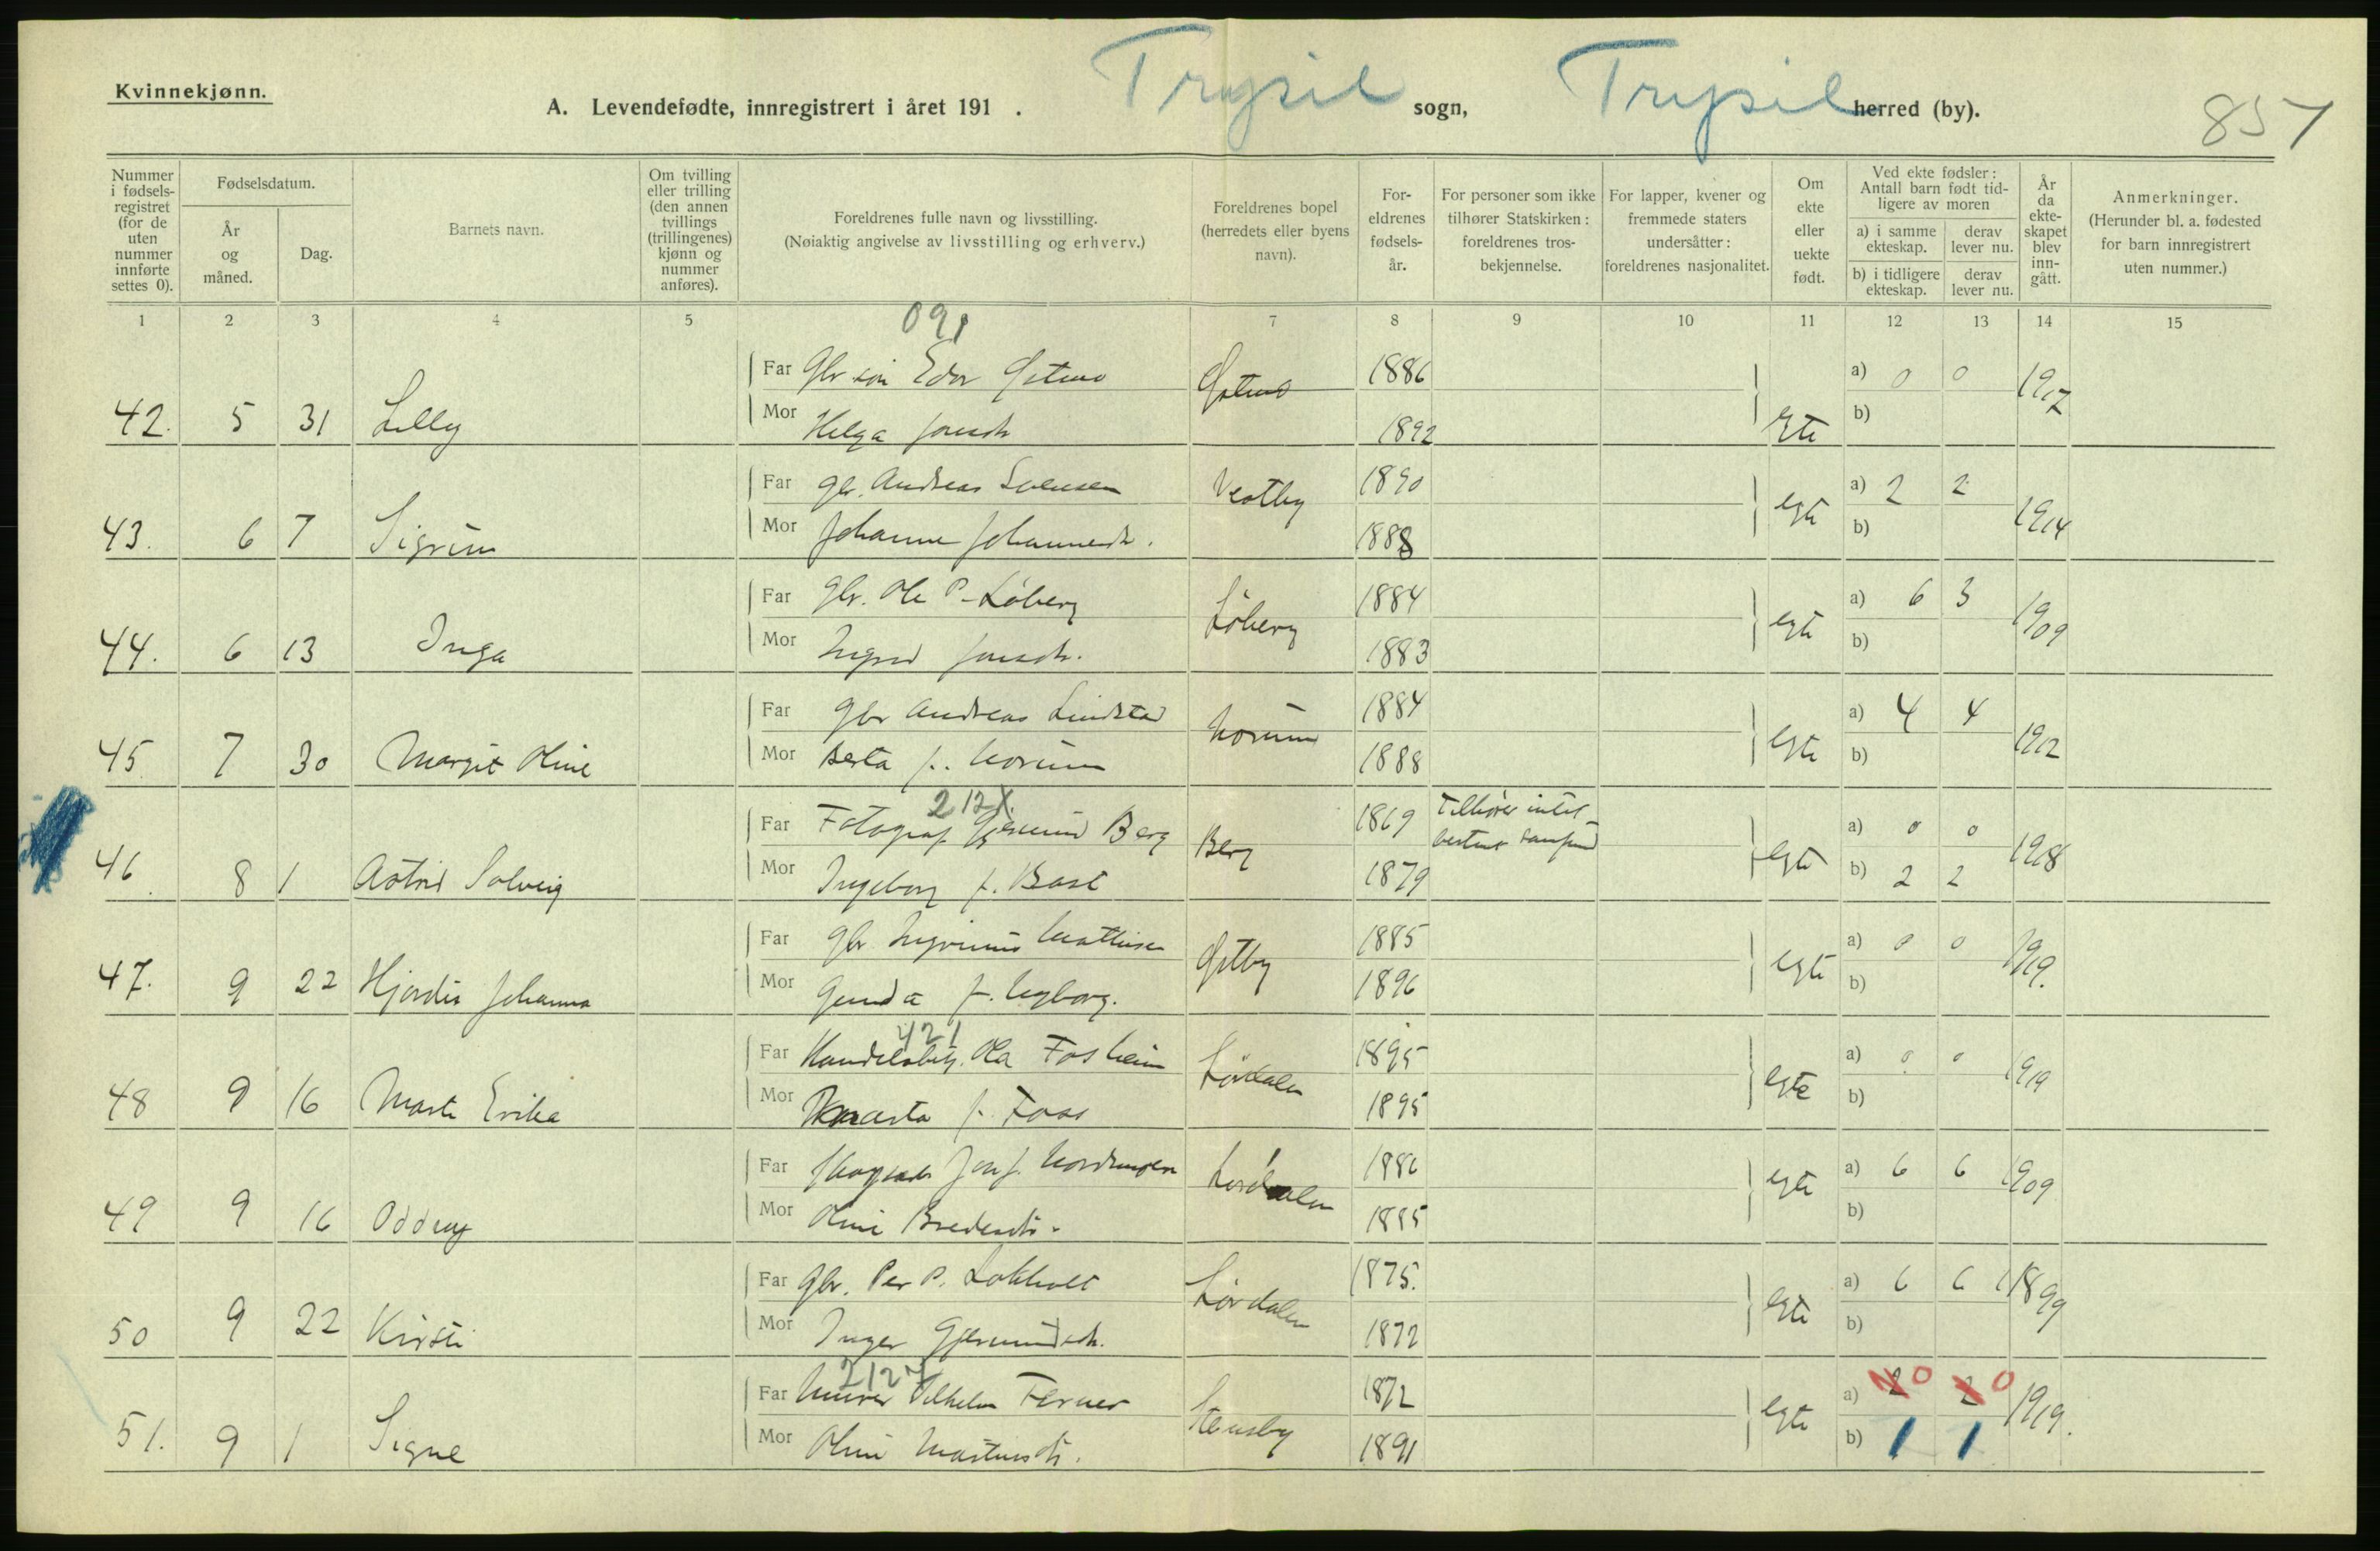 Kvinnekjønn.
A. Levendefødte, innregistrert i året 191 . Trysil sogn, Trysil herred (by). 857
Nummer i fødselsregistret (for de uten nummer innførte settes 0).
Fødselsdatum.
År og måned.
Dag.
Barnets navn.
Om tvilling eller trilling (den annen tvillings (trillingenes) kjønn og nummer anføres).
Foreldrenes fulle navn og livsstilling.
(Nøiaktig angivelse av livsstilling og erhverv.)
Foreldrenes bopel (herredets eller byens navn).
Foreldrenes fødselsår.
For personer som ikke tilhører Statskirken: foreldrenes trosbekjennelse.
For lapper, kvener og fremmede staters undersåtter: foreldrenes nasjonalitet.
Om ekte eller uekte født.
Ved ekte fødsler: Antall barn født tidligere av moren
a) i samme ekteskap. derav lever nu.
b) i tidligere ekteskap. derav lever nu.
År da ekteskapet blev inngått.
Anmerkninger.
(Herunder bl. a. fødested for barn innregistrert uten nummer.)
1 2 3 4 5 7 8 9 10 11 12 13 14 15
091
Far Gbr søn Edor 1886 a) 0 0 1917
42. 5 31 Lilly Mor Helga Jonsdt 1892 Ekte b)
Far gbr. Andreas Svensen Vestby 1890 a) 2 2 1914
43. 6 7 Sigrun Mor Johanne Johannesdt. 1888 egte b)
Far gbr. Ole P. Løberg Løberg 1884 a) 6 3 1909
44. 6 13 Inga Mor Ingrid Jonsdt. 1883 egte b)
Far gbr Andreas Lindstad Norum 1884 a) 4 4 1912
45 7 30 Margit Oline Mor Berta f. Norum 1888 egte b)
212X
Far Fotograf Gjermund Berg Berg 1869 Tilhører intet bestemt samfund a) 0 0 1918
46. 8 1 Astrid Solveig Mor Ingeborg f. 1879 egte b) 2 2
Far gbr. Mathisen Galtby 1885 a) 0 0 1919.
47. 9 22 Hjørdis Johanna Mor Gunda f. Nyborg. 1896 egte b)
421
Far Handelsbetj. Ola Fosheim Lørdalen 1895 a) 0 0 1919
48 9 16 Marte Erika Mor Marta f. Foss 1895 egte b)
Far Jon J. Nordmoen Lørdalen 1886 a) 6 6 1909
49 9 16 Oddny Mor Oline Bredesdt. 1885 egte b)
Far Gbr. Per P. Lokholt Lørdalen 1875. a) 6 6 1899
50 9 22 Kirsti Mor Inger Gjermundsdt. 1872 egte b)
2127
Far Murer Vilhelm Ferner Stensby 1872 a) 2 0 2 0 1919.
51. 9 1 Signe Mor Oline Martinsdt. 1891 egte b) 1 1